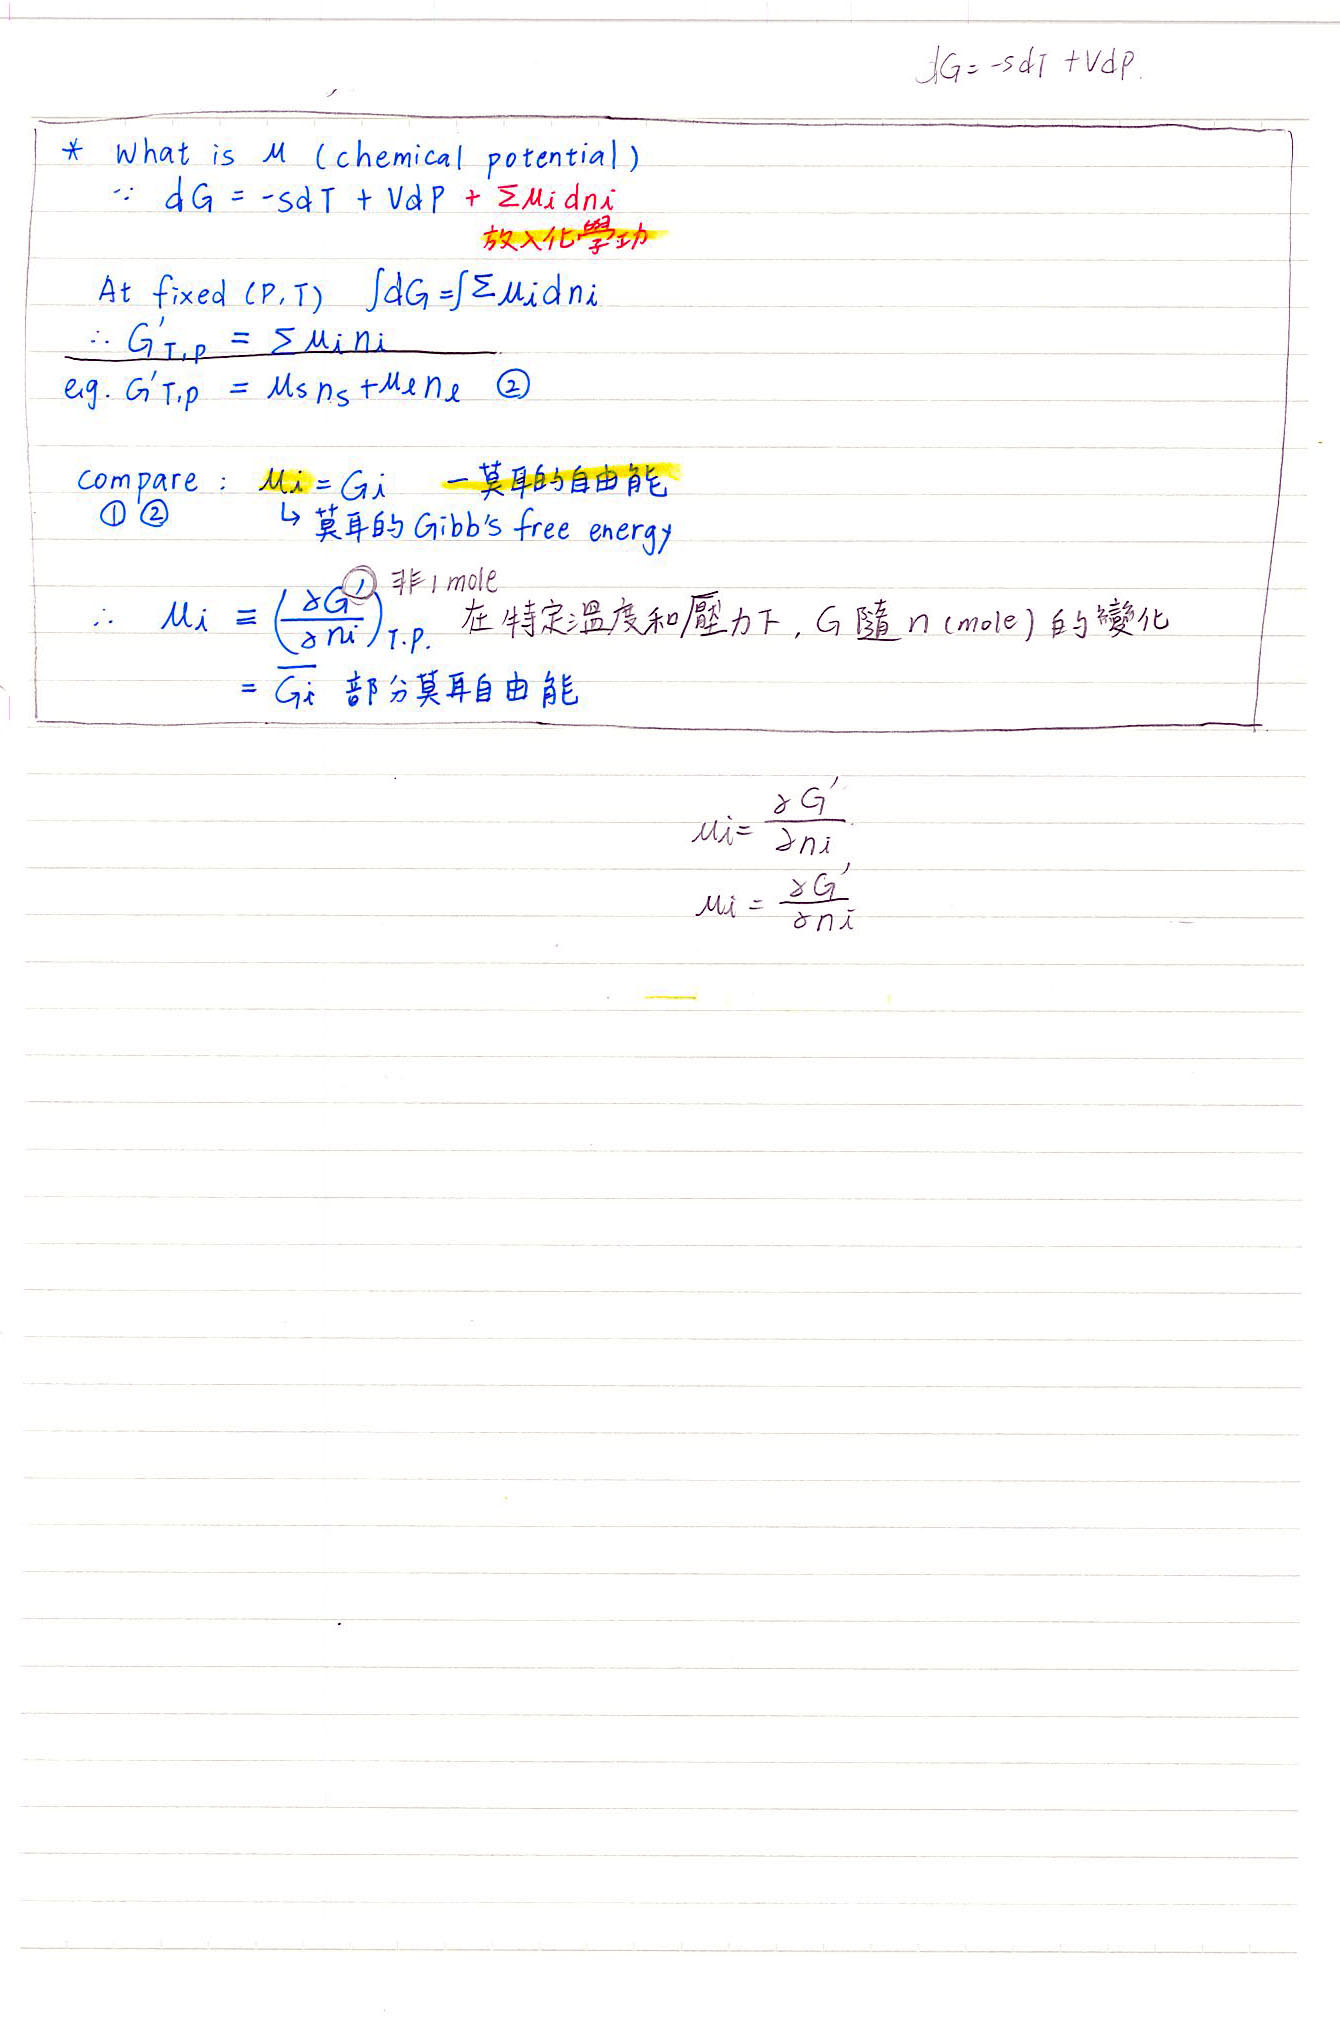 dG = -sdT + VdP.
* What is μ (chemical potential)
∵ dG = -sdT + VdP + Σμidni
放入化學功
At fixed (P,T) ∫dG = ∫Σμidni
∴ G'T,P = Σμini
e.g. G'T,P = μsns + μlnl ②
compare : μi = Gi 一莫耳的自由能
① ② ↳ 莫耳的 Gibb's free energy
∴ μi ≡ (∂G'/∂ni)T.P. 非1mole 在特定溫度和壓力下, G 隨 n (mole) 的變化
= G̅i 部分莫耳自由能
μi = ∂G'/∂ni
μi = ∂G'/∂ni